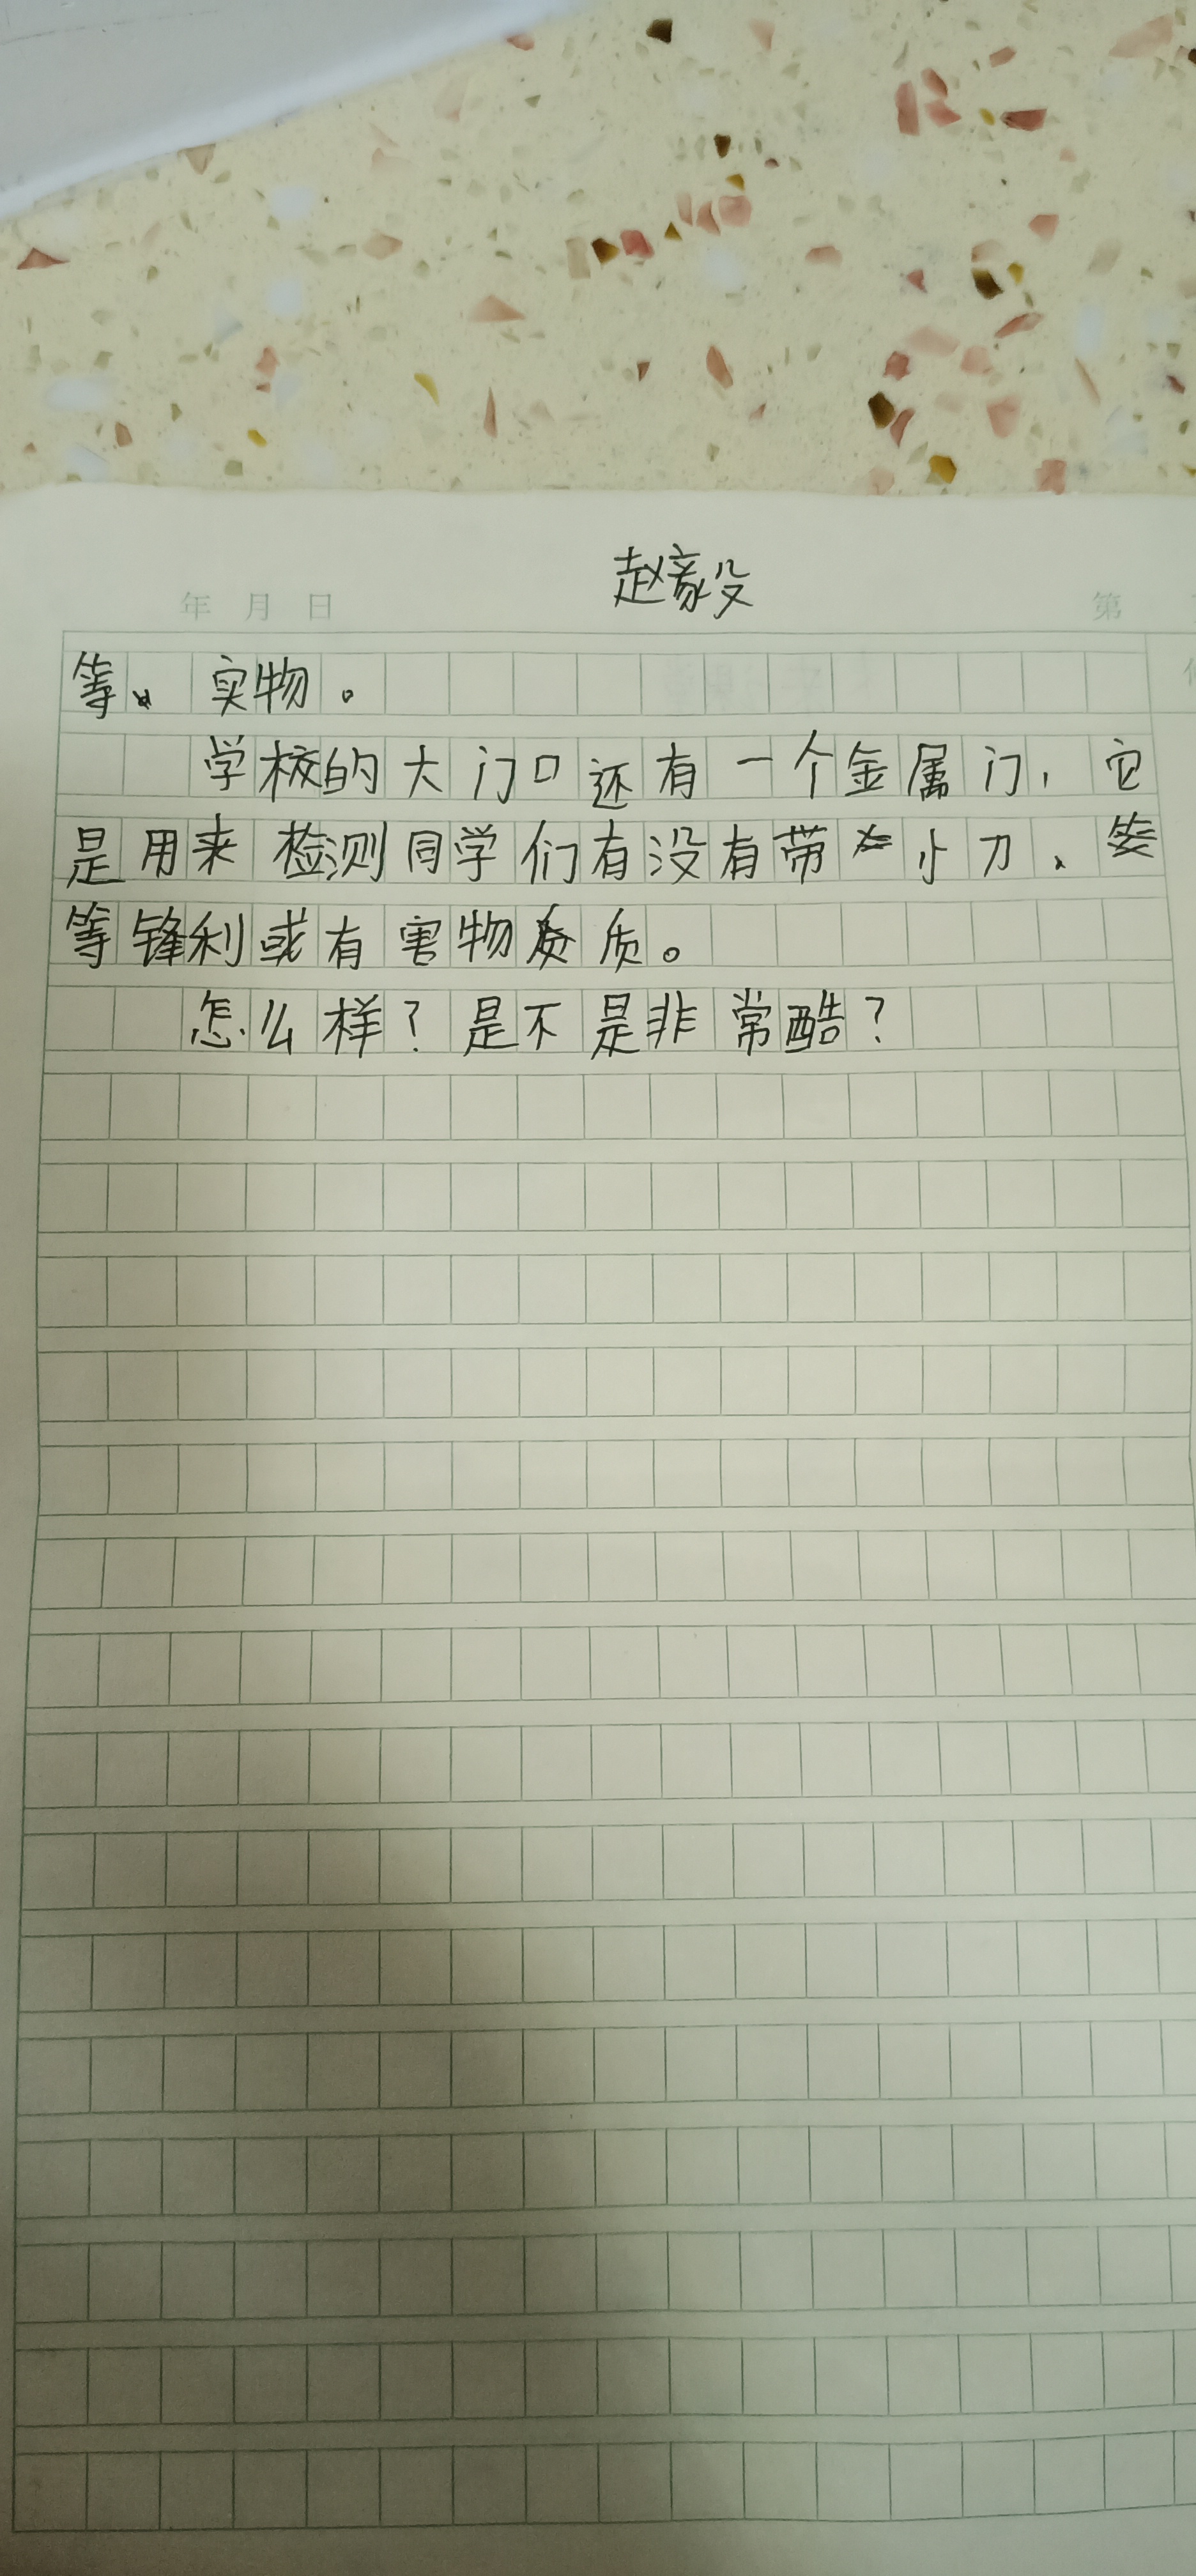 赵豪殳
年 月 日
第
等、实物。
学校的大门口还有一个金属门，它
是用来检测同学们有没有带小刀、
等锋利或有害物质。
怎么样？是不是非常酷？